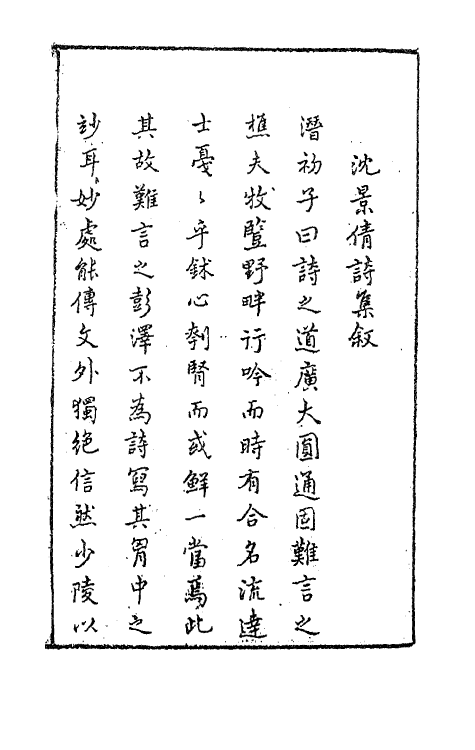 沈景倩詩集叙
潛初子曰詩之道廣大圓通固難言之
樵夫牧豎野畔行吟而時有合名流達
士戞〻乎鉥心刳腎而或鮮一當焉此
其故難言之彭澤不為詩寫其胷中之
玅耳妙處能傳文外獨絶信然少陵以